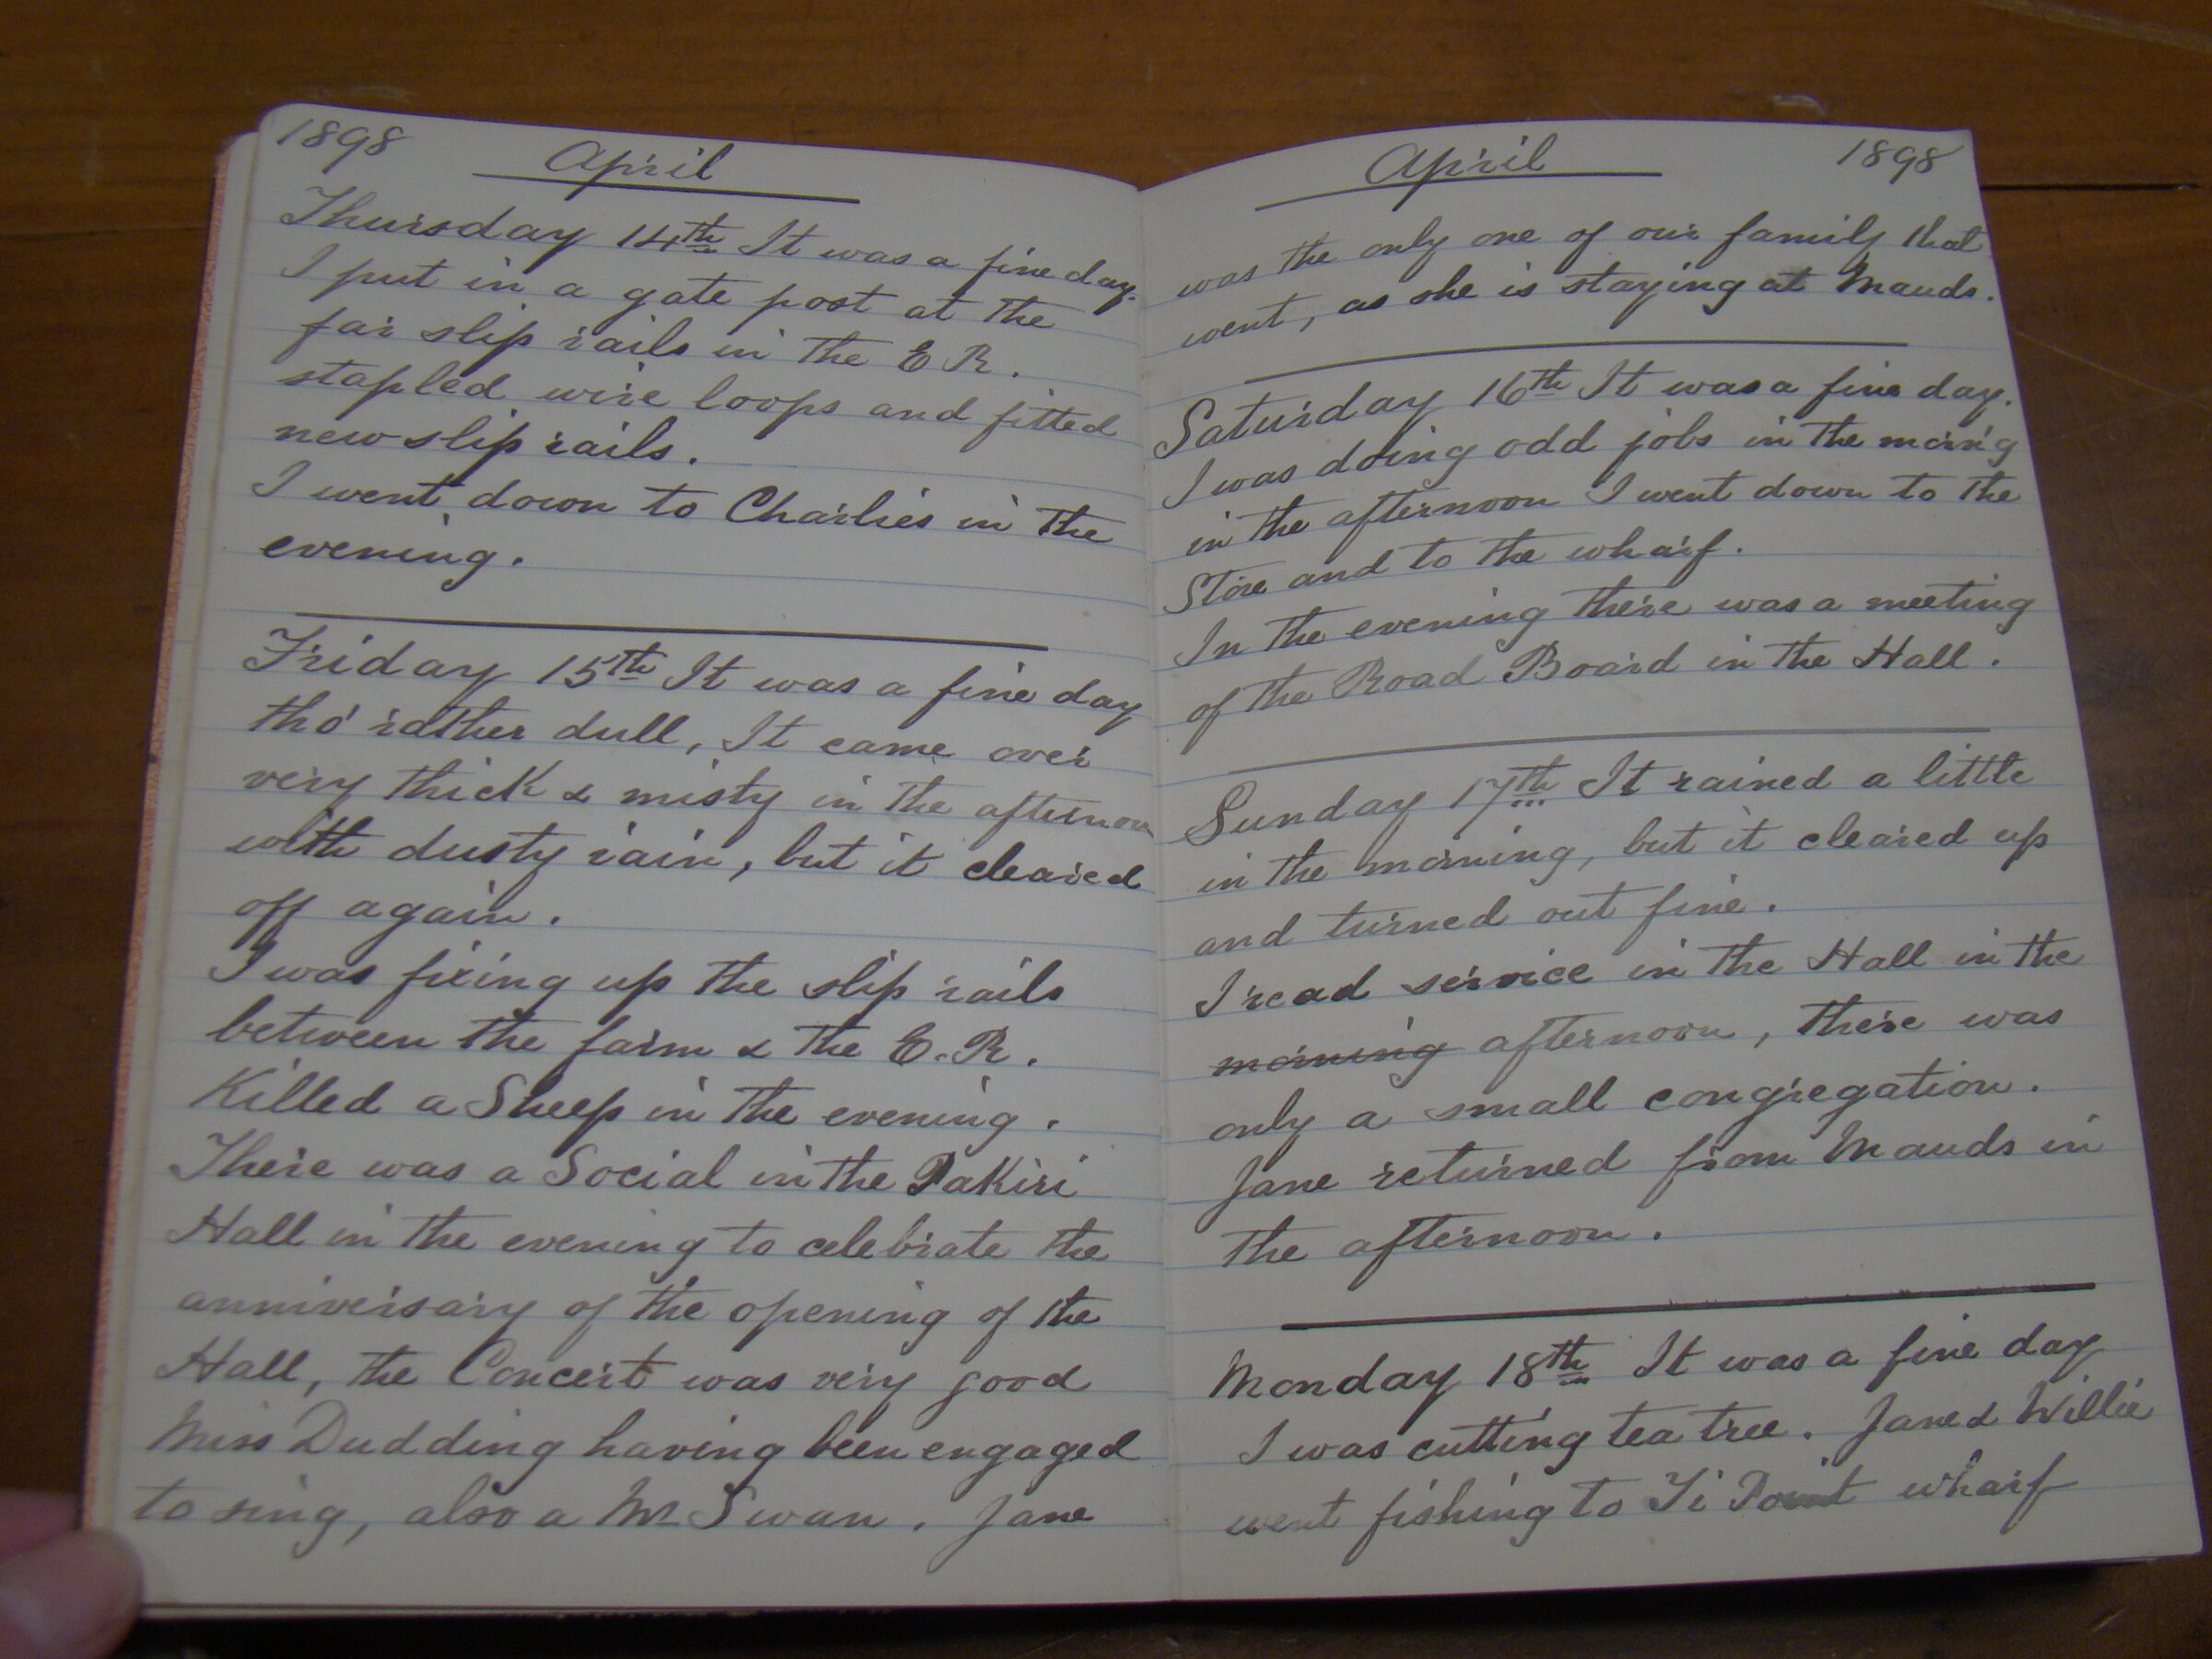 1898 April
Thursday 14th It was a fine day.
I put in a gate post at the
far slip rails in the E R.
stapled wire loops and fitted
new slip rails.
I went down to Charlies in the
evening.
Friday 15th It was a fine day
tho' rather dull, It came over
very thick & misty in the afternoon
with dusty rain, but it cleared
off again.
I was fixing up the slip rails
between the farm & the E. R.
Killed a Sheep in the evening.
There was a Social in the Pakiri
Hall in the evening to celebrate the
anniversary of the opening of the
Hall, the Concert was very good
Miss Dudding having been engaged
to sing, also a Mr Swan. Jane
April 1898
was the only one of our family that
went, as she is staying at Mauds.
Saturday 16th It was a fine day.
I was doing odd jobs in the morn'g
in the afternoon I went down to the
Store and to the wharf.
In the evening there was a meeting
of the Road Board in the Hall.
Sunday 17th It rained a little
in the morning, but it cleared up
and turned out fine.
I read service in the Hall in the
morning afternoon, there was
only a small congregation.
Jane returned from Mauds in
the afternoon.
Monday 18th It was a fine day
I was cutting tea tree. Jane & Willie
went fishing to Ti Point wharf